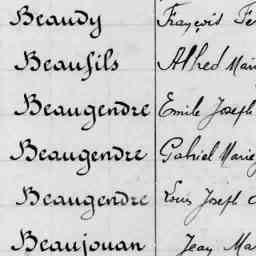 Beaudy François
Beaufils Alfred
Beaugendre Emile Joseph
Beaugendre Gabriel Marie
Beaugendre Louis Joseph
Beaujouan Jean